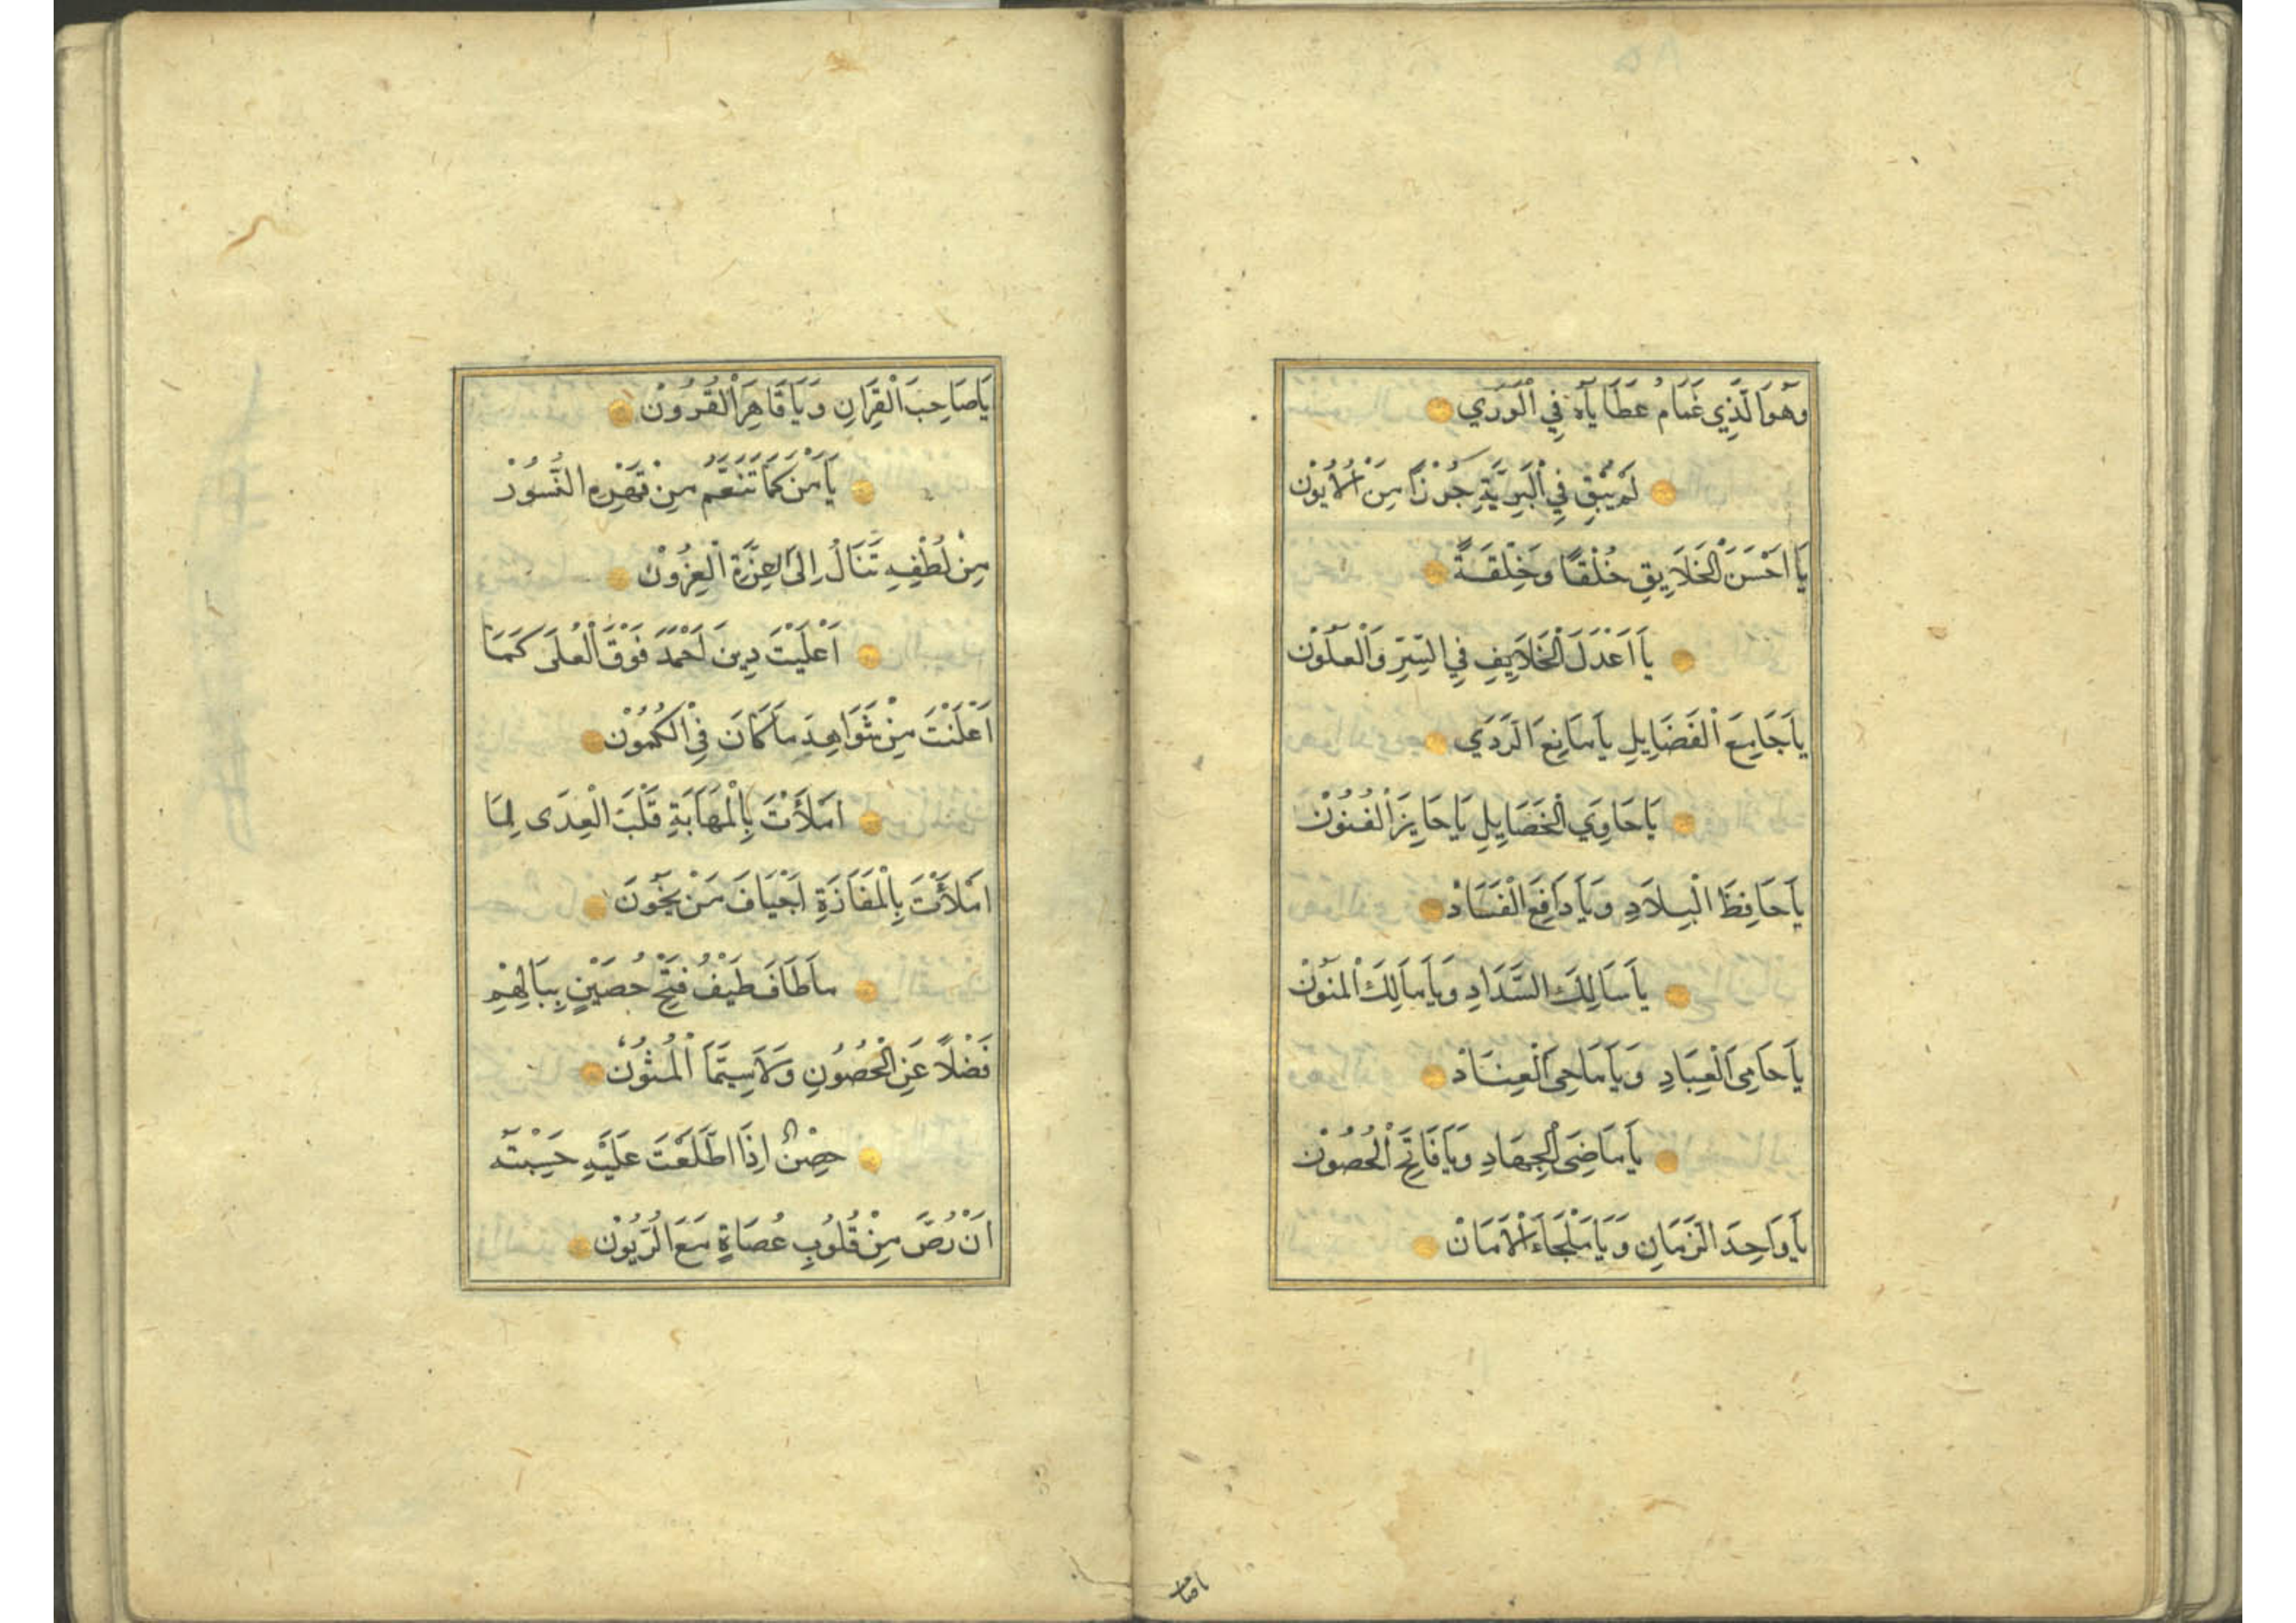 وَهُوَ الَّذِي غَمَام عَطَايَاهُ فِي الْوَرَي
لَمْ يُبْقِ فِي الْبَرِيَّةِ جُرْزًا مِنَ الْاُيُوْن
يَا اَحْسَنَ الْخَلَايِقِ خُلْقًا وَخِلْقَةً
يَا اَعْدَلَ الْخَلَايِفِ فِي السِّرِّ وَالْعَلُوْن
يَا جَامِعَ الْفَضَايِلِ يَا مَانِعَ الرَّدَي
يَا حَاوِيَ الْخَصَايِلِ يَا حَايِزَ الْفُنُوْن
يَا حَافِظَ الْبِلَادِ وَيَا دَافِعَ الْفَسَادْ
يَا سَالِكَ السَّدَادِ وَيَا مَالِكَ الْمَنُوْن
يَا حَامِيَ الْعِبَادِ وَيَا مَاحِيَ الْعِنَادْ
يَا مَاضِيَ الْجِهَادِ وَيَا فَاتِحَ الْحُصُوْن
يَا وَاحِدَ الزَّمَانِ وَيَا مَلْجَاءَ الْاَمَانْ
يَا صَاحِبَ الْقِرَانِ وَيَا قَاهِرَ الْقُرُوْنْ
يَا مَنْ كَمَا تَنَعَّمُ مِنْ قَهْرِهِ النُّسُوْرْ
مِنْ لُطْفِهِ تَنَالُ اِلَى الْعِزَّةِ الْعِزُوْنْ
اَعْلَيْتَ دِينَ اَحْمَدَ فَوْقَ الْعُلَى كَمَا
اَعْلَنْتَ مِنْ شَوَاهِدَ مَا كَانَ فِي الْكُمُوْنْ
اَمْلَأْتَ بِالْمَهَابَةِ قَلْبَ الْعِدَى لِمَا
اَمْلَأْتَ بِالْمَفَازَةِ اَجْيَافَ مَنْ يَخُونَ
مَا طَافَ طَيْفُ فَتْحِ حُصَيْنٍ بِبَالِهِمْ
فَضْلًا عَنِ الْحُصُونِ وَلَا سِيَّمَا الْمُثُوْن
حِصْنٌ اِذَا اطَّلَعْتَ عَلَيْهِ حَسِبْتَه
اَنْ رُصَّ مِنْ قُلُوبِ عُصَاةٍ مَعَ الرُّيُوْنْ
يا صا